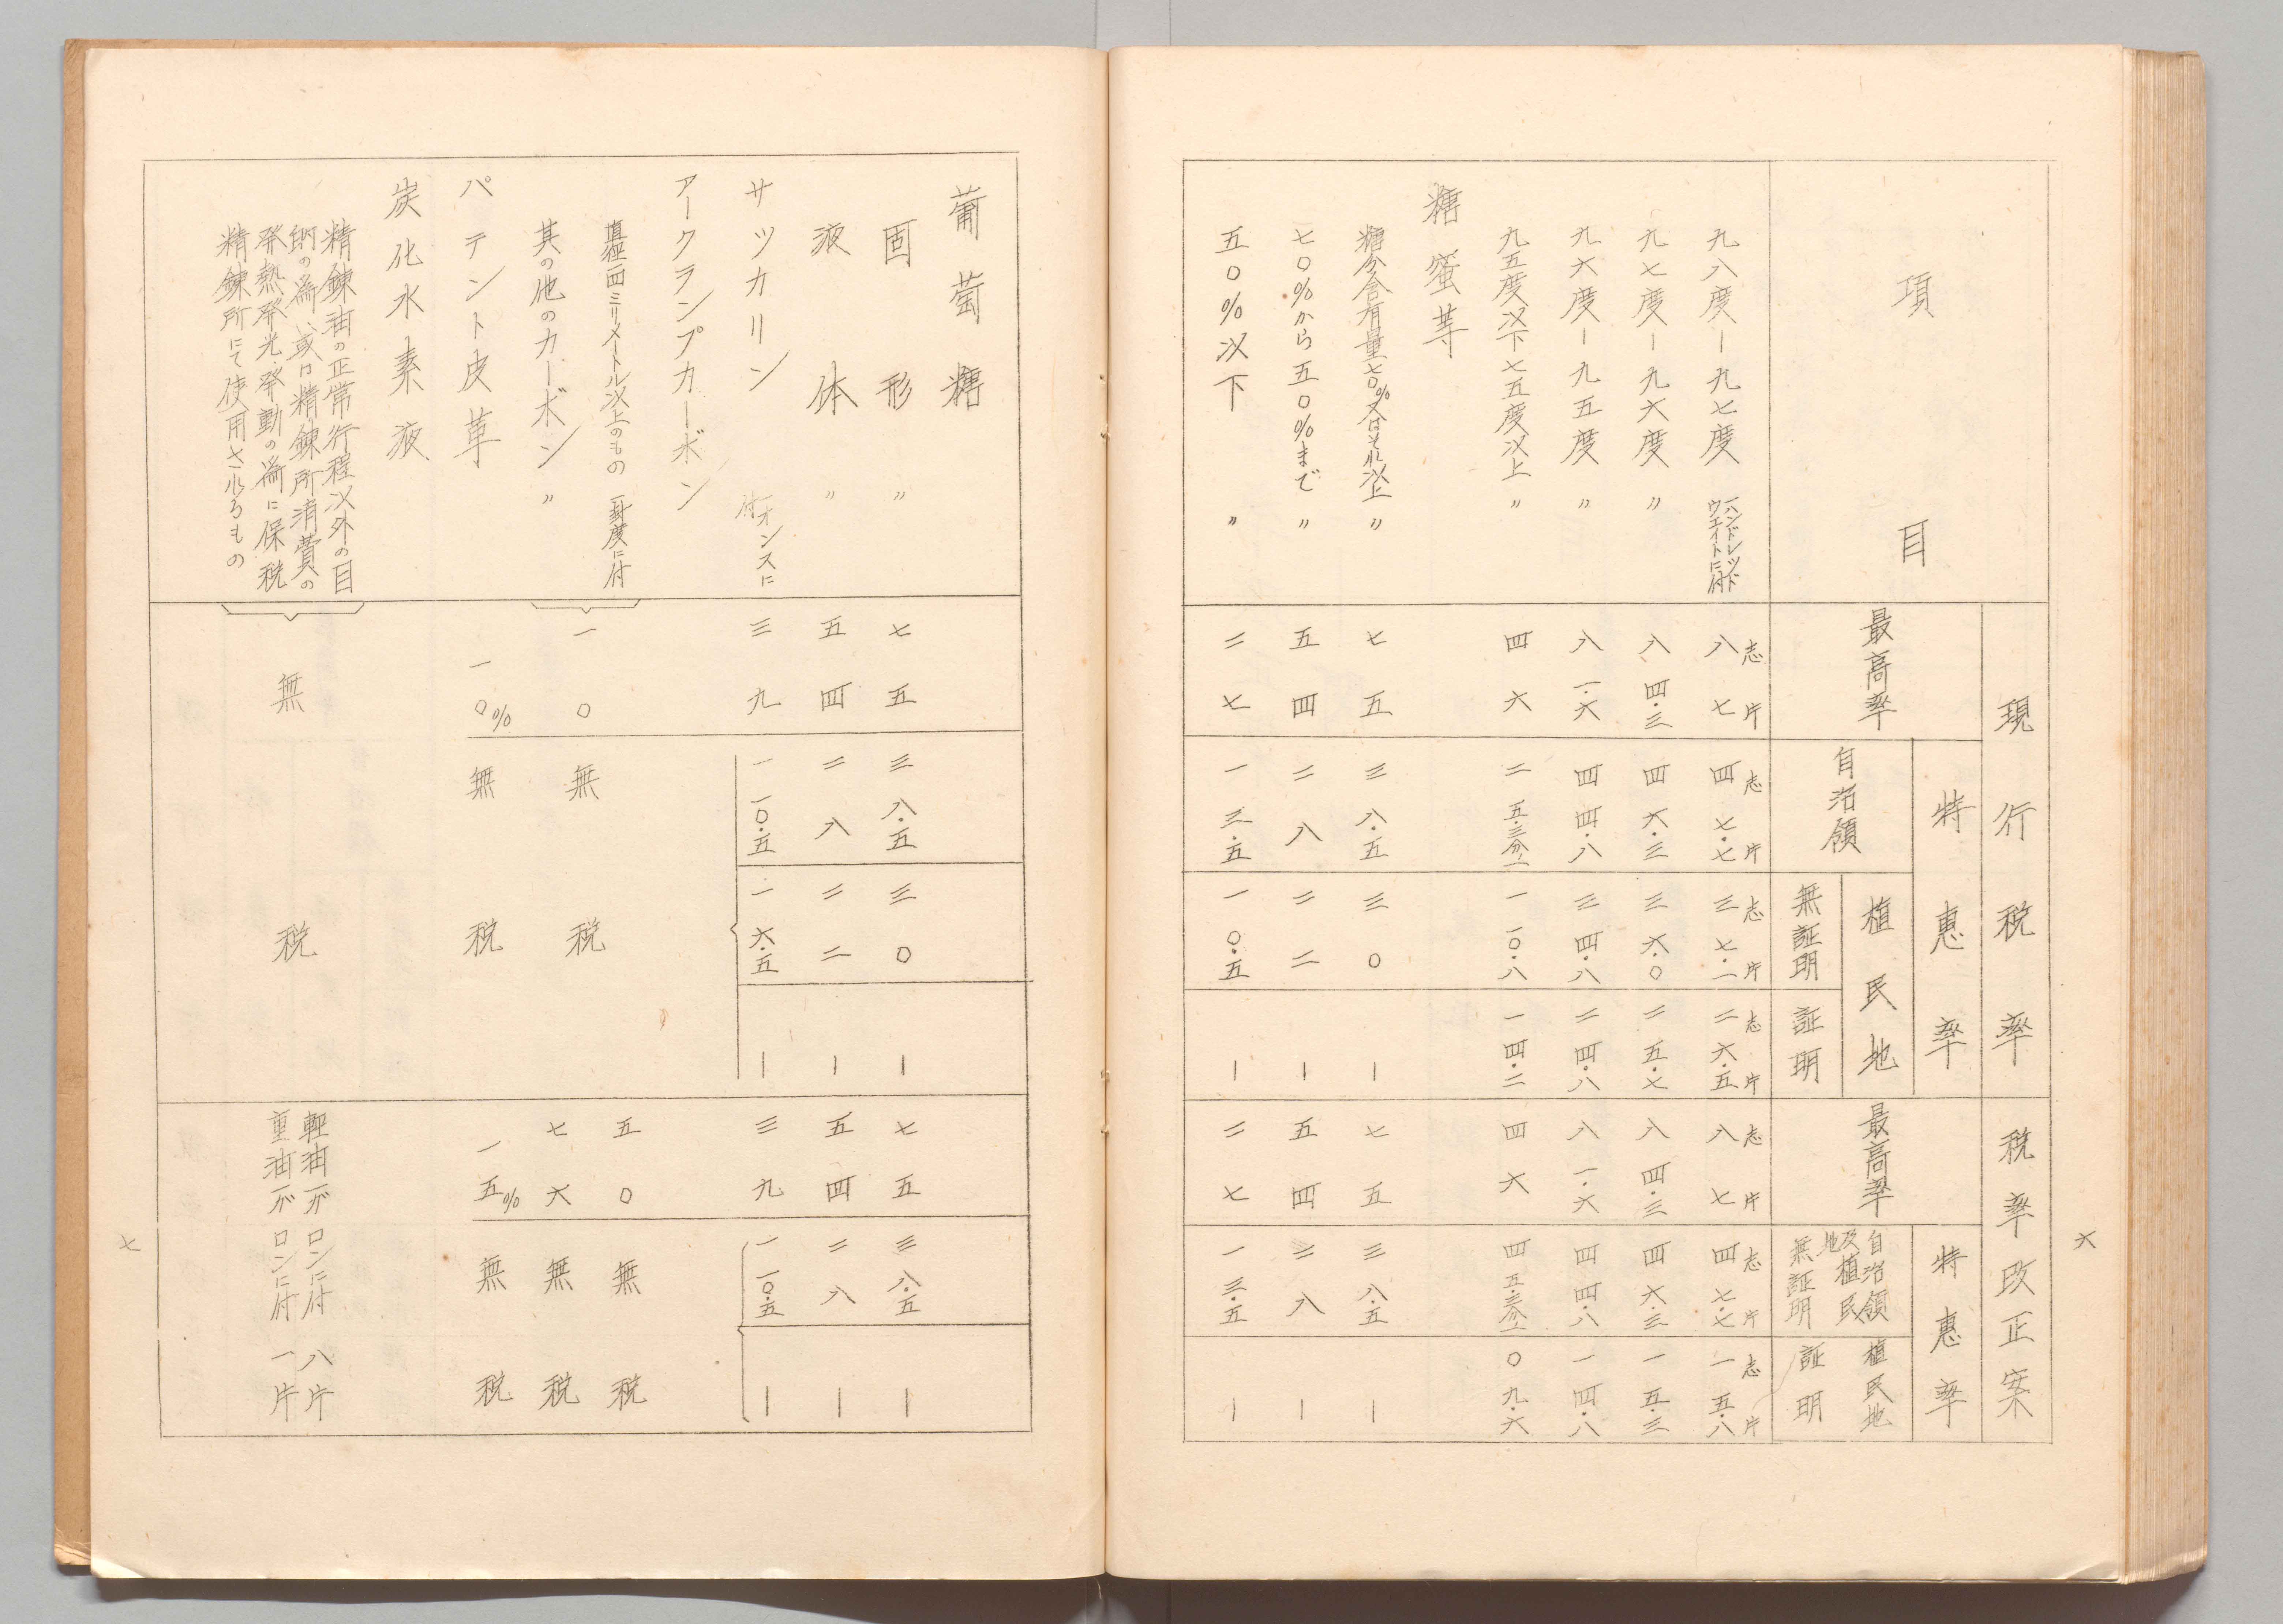 六
項目
現行税率
税率改正案
最高率
特惠率
自治領
植民地
無証明
証明
最高率
特惠率
自治領及植民地無証明
植民地証明
九八度ー九七度 一ハンドレッドウエイトに付 八志七片 四志七・七片 三志七・一片 二志六・五片 八志七片 四志七・七片 一志五・八片
九七度ー九六度 〃 八 四・三 四 六・三 三 六・〇 二 五・七 八 四・三 四 六・三 一 五・三
九六度ー九五度 〃 八 一・六 四 四・八 三 四・八 二 四・八 八 一・六 四 四・八 一 四・八
九五度以下七五度以上 〃 四 六 二 五・三分ノ一 一 一〇・八 一 四・二 四 六 四 五・三分ノ一 〇 九・六
糖蜜等
糖分含有量七〇%又はそれ以上 〃 七 五 三 八・五 三 〇 ー 七 五 三 八・五 ー
七〇%から五〇%まで 〃 五 四 二 八 二 二 ー 五 四 二 八 ー
五〇%以下 〃 二 七 一 三・五 一 〇・五 ー 二 七 一 三・五 ー
葡萄糖
固形 〃 七 五 三 八・五 三 〇 ー 七 五 三 八・五 ー
液体 〃 五 四 二 八 二 二 ー 五 四 二 八 ー
サッカリン 一オンスに付 三 九 一 一〇・五 一 六・五 ー 三 九 一 一〇・五 ー
アークランプカーボン
直径一四ミリメートル以上のもの 一封度に付 一〇 無税 五〇 無税
其の他のカーボン 〃 七六 無税
パテント皮革 一〇% 無税 一五% 無税
炭化水素液
精錬油の正常行程以外の目
的の為、或は精錬所消費の
発熱発光発動の為に保税
精錬所にて使用さるるもの
無税
軽油一ガロンに付 八片
重油一ガロンに付 一片
七